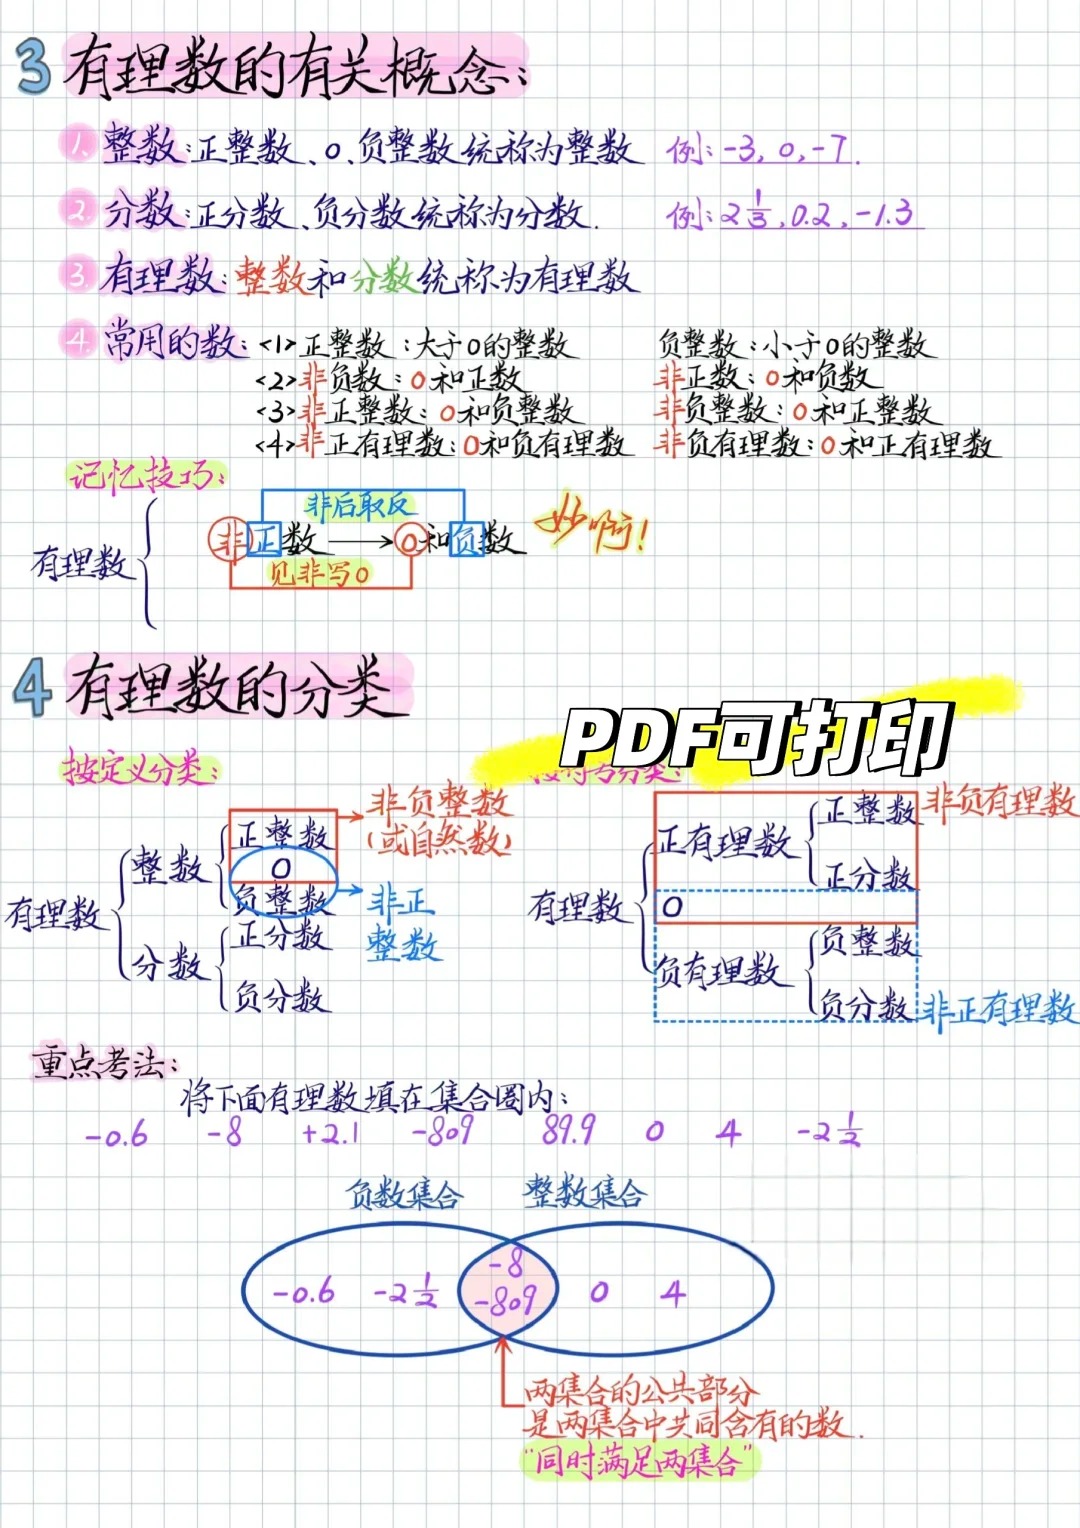 3 有理数的有关概念:
1. 整数:正整数、0、负整数统称为整数 例:-3, 0, -7.
2. 分数:正分数、负分数统称为分数. 例:2 1/3, 0.2, -1.3
3. 有理数:整数和分数统称为有理数
4. 常用的数:<1>正整数:大于0的整数 负整数:小于0的整数
<2>非负数:0和正数 非正数:0和负数
<3>非正整数:0和负整数 非负整数:0和正整数
<4>非正有理数:0和负有理数 非负有理数:0和正有理数
记忆技巧:
非后取反
有理数 非正数→0和负数 妙啊!
见非写0
4 有理数的分类
PDF可打印
按定义分类: 按符号分类:
有理数
整数
正整数
0
负整数
非负整数
(或自然数)
非正
整数
分数
正分数
负分数
有理数
正有理数
正整数
正分数
非负有理数
0
负有理数
负整数
负分数
非正有理数
重点考法:
将下面有理数填在集合圈内:
-0.6 -8 +2.1 -809 89.9 0 4 -2 1/2
负数集合 整数集合
-0.6 -2 1/2
-8
-809
0 4
两集合的公共部分
是两集合中共同含有的数.
"同时满足两集合"